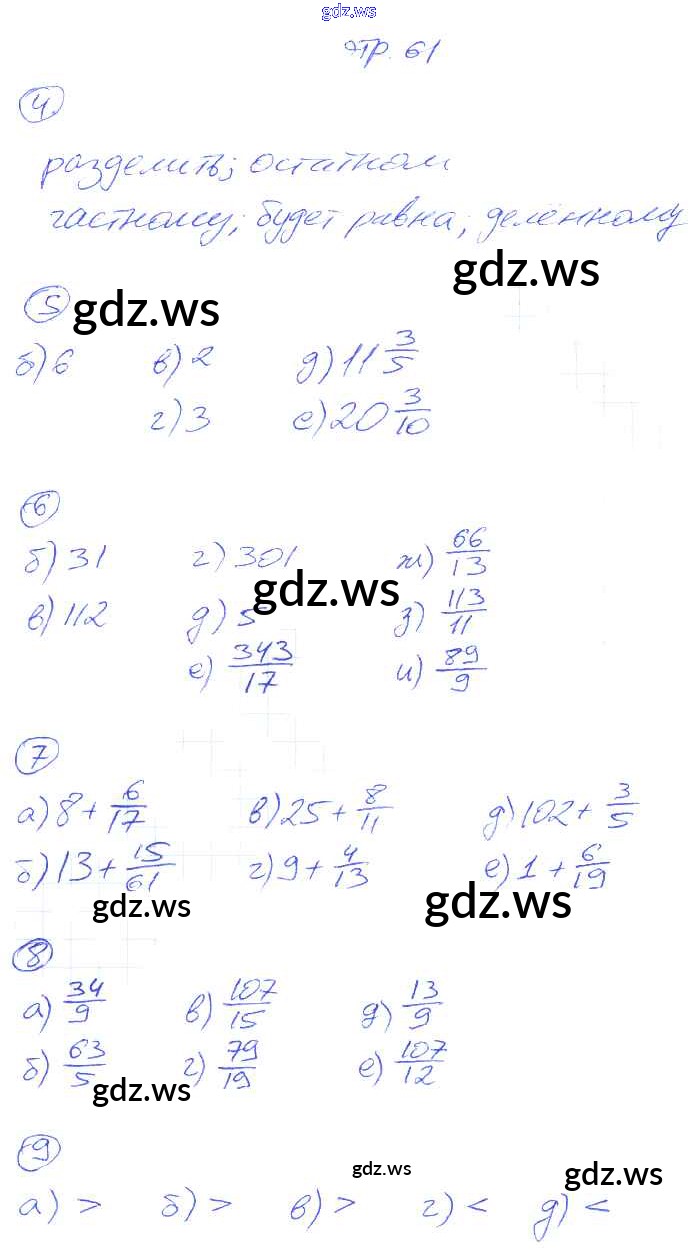 gdz.ws
стр. 61
4
разделить; остатком
частному; будет равна; делённому
gdz.ws
5 gdz.ws
б) 6 в) 2 д) 11 3/5
г) 3 е) 20 3/10
6
б) 31 г) 301 ж) 66/13
gdz.ws
в) 112 д) 5 з) 113/11
е) 343/17 и) 89/9
7
а) 8 + 6/17 в) 25 + 8/11 д) 102 + 3/5
б) 13 + 15/61 г) 9 + 4/13 е) 1 + 6/19
gdz.ws gdz.ws
8
а) 34/9 в) 107/15 д) 13/9
б) 63/5 г) 79/19 е) 107/12
gdz.ws
9
gdz.ws gdz.ws
а) > б) > в) > г) < д) <